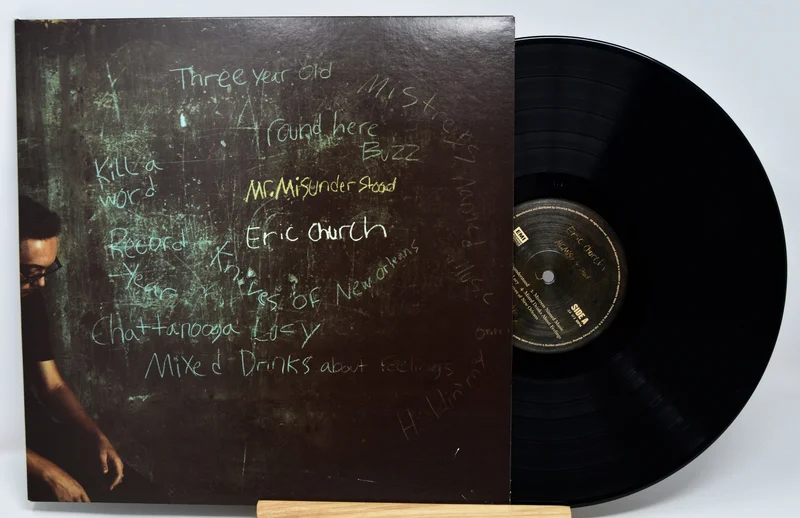 Three year old
Mistress named Music
Around here
Buzz
Kill a
word
Mr. Misunderstood
Eric Church
Record
Year
Knives of New Orleans
Chattanooga Lucy
Mixed Drinks about Feelings
EMI
Eric Church
SIDE A